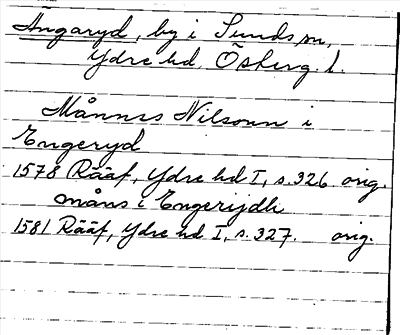 Ängaryd, by i Sunds sn,
Ydre hd. Österg. l.
Månnss Nilsonn i
Engeryd
1578 Rääf, Ydre hd I, s. 326 orig.
Måns i Engerijdh
1581 Rääf, Ydre hd I, s. 327. orig.